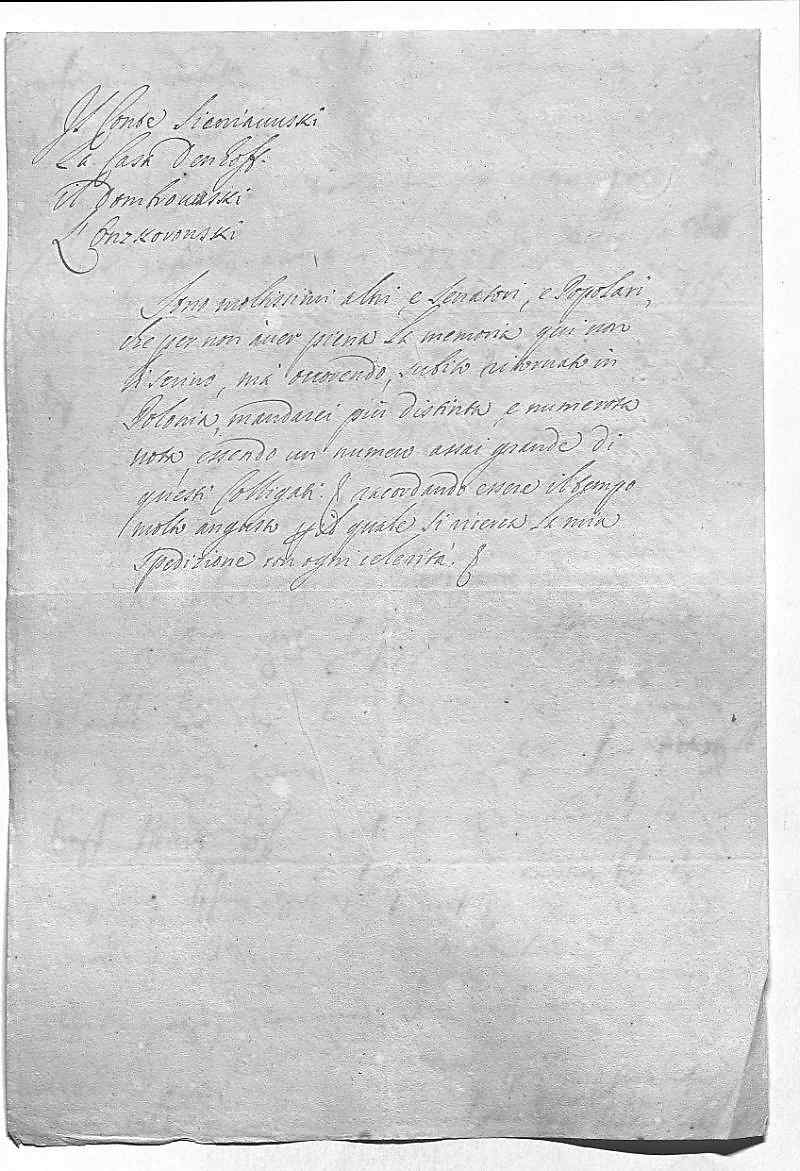 Il Conte Sieniawuski
La Casa Denhoff.
il Dombrowuski
L Conzkovonski
Sono moltissimi altri, e Senatori, e Popolari,
che per non aver piena la memoria qui non
si scrive, mà occorendo, subito ritornato in
Polonia, mandarei più distinta, e numerosa
nota, essendo un numero assai grande di
questi Colligati. racordando essere il tempo
molto angusto il quale si ricerca la mia
spedizione con ogni celerità.